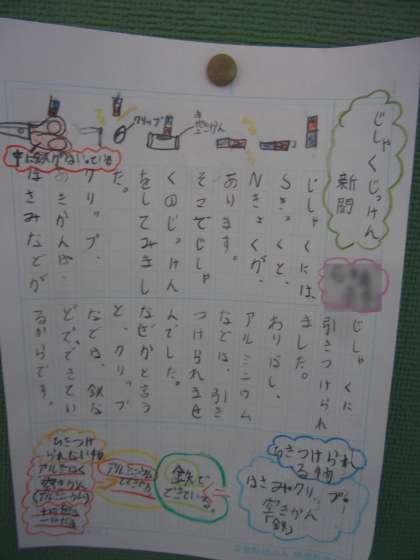 じしゃくじっけん
新聞
クリップ
空きかん
中に鉄がはいっている
じしゃくには、
Sきょくと、
Nきょくが、
あります。
そこでじしゃ
くのじっけん
をしてみまし
た。
クリップ、
あきかんや、
はさみなどが
じしゃくに
引きつけられ
ました。
わりばし、
アルミニウム
などは、引き
つけられませ
んでした。
なぜかと言う
と、クリップ
などは、鉄な
どで、できてい
るからです。
ひきつけられ
る物
はさみやクリップ。
空きかん
「鉄」
鉄で
できている。
アルミニウム
でできている
ひきつけ
られない物
アルミはく
空きかん
(アルミニウム)